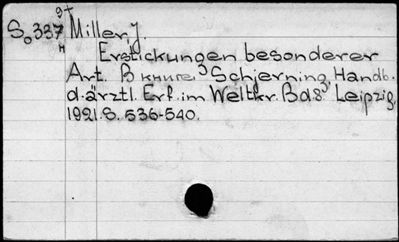 9т
So 337 Miller, J.
н
Erstickungen besonderer
Art. В книге Schjerning, Handb.
d. ärztl. Erf. im Weltkr. Bd 8. Leipzig,
1921. S. 536-540.